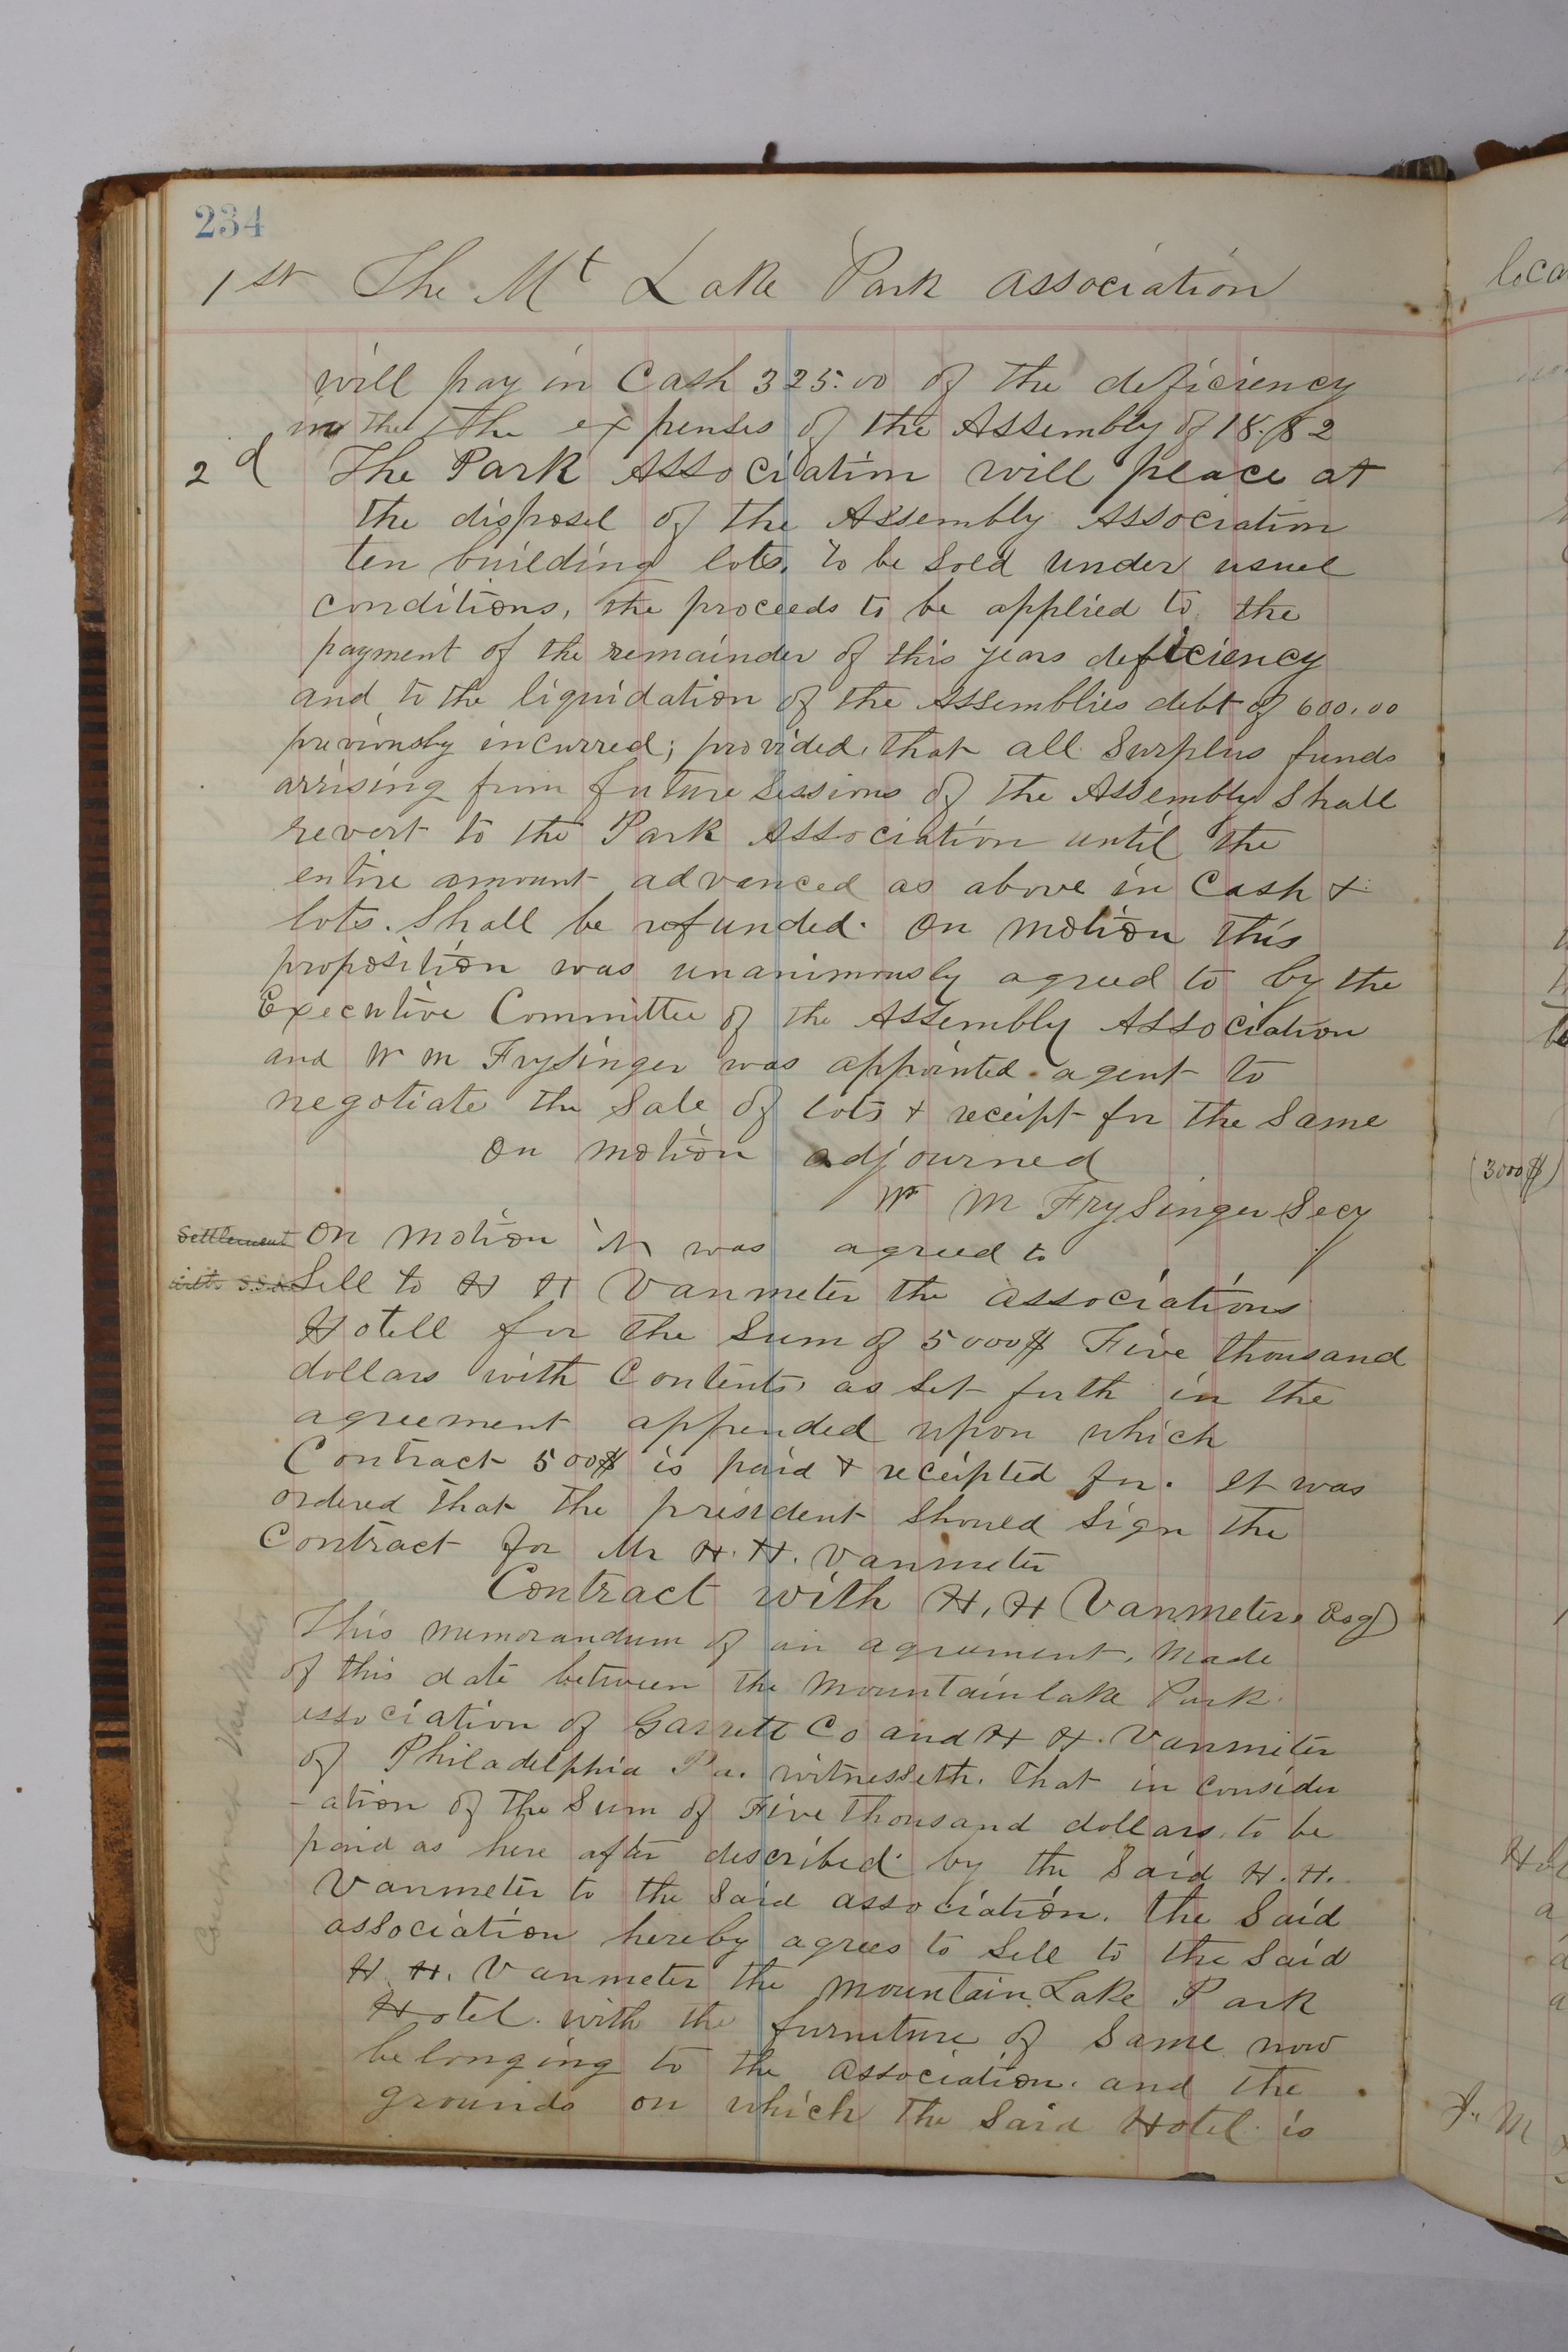 234
1st The Mt Lake Park association
will pay in Cash 325.00 of the deficiency
in the the expenses of the Assembly of 18.82
2d The Park Association will place at
the disposel of the Assembly Association
ten building lots, to be Sold under usuel
conditions, the proceeds to be applied to the
payment of the remainder of this years deficiency
and to the liquidation of the Assemblies debt of 600.00
previously incurred; provided that all Surplus funds
arrising from future Sessions of the Assembly Shall
revert to the Park Association until the
entire amount advanced as above in Cash &
lots. Shall be refunded. On motion this
proposition was unanimously agreed to by the
Executive Committee of the Assembly Association
and W M Frysinger was appointed agent to
negotiate the Sale of lots & receipt for the Same
On motion adjourned
W M Frysinger Secy
Settlement On motion it was agreed to
with S.S.A. Sell to H H Vanmeter the associations
Hotell for the Sum of 5000$ Five thousand
dollars with Contents as Set forth in the
agreement appended upon which
Contract 500$ is paid & receipted for. It was
ordered that the president Should Sign the
Contract for Mr H. H. Vanmeter
Contract with H, H Vanmeter. Esq
This memorandum of an agreement, made
of this date between the Mountainlake Park
association of Garrett Co and H H. Vanmeter
of Philadelphia Pa. witnesseth. That in consider
-ation of the Sum of Five thousand dollars, to be
paid as here after described by the Said H. H.
Vanmeter to the Said association. the Said
association hereby agrees to Sell to the Said
H. H. Vanmeter the Mountain Lake Park
Hotel. with the furniture of Same now
belonging to the association. and the
grounds on which the Said Hotel is
Van Meter
(3000$)